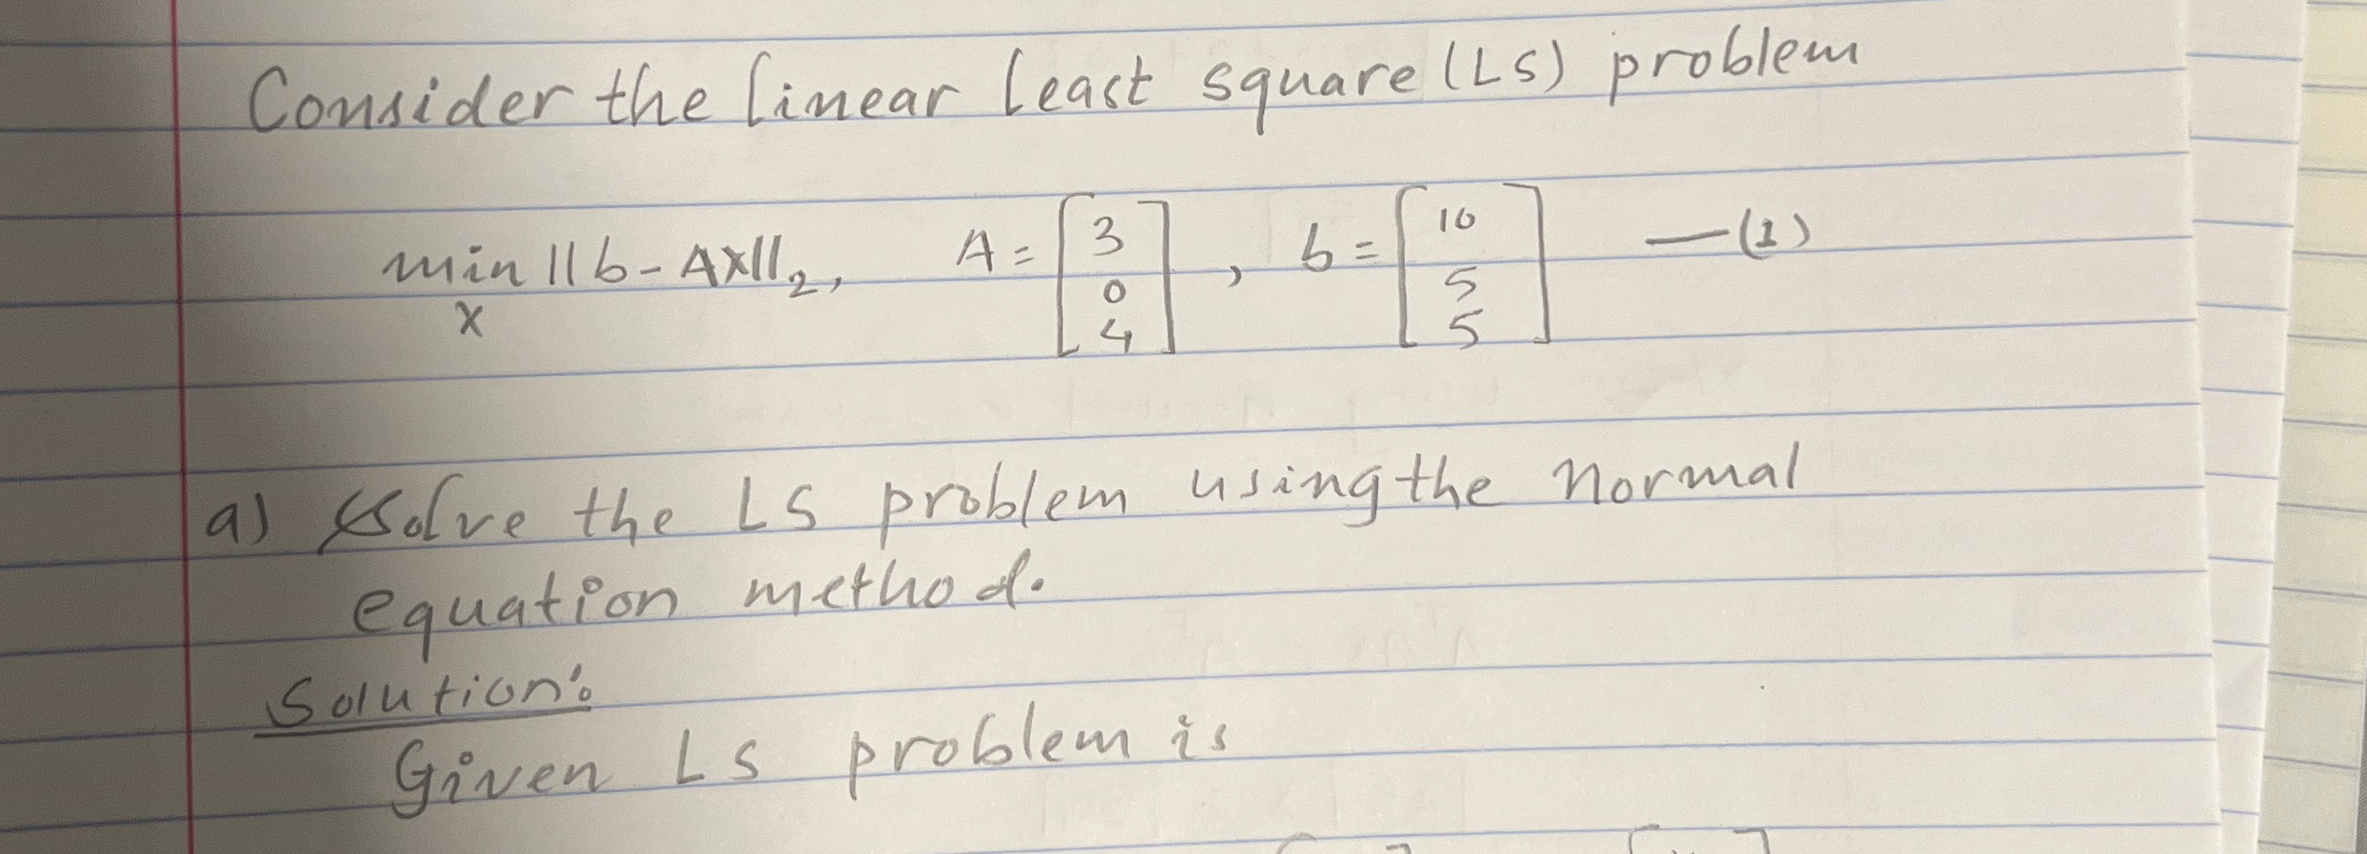 Consider the linear least square (LS) problem
min ||b - AX||₂, A = [3 0 4], b = [10 5 5] — (1)
x
a) Solve the LS problem using the normal
equation method.
Solution:
Given LS problem is